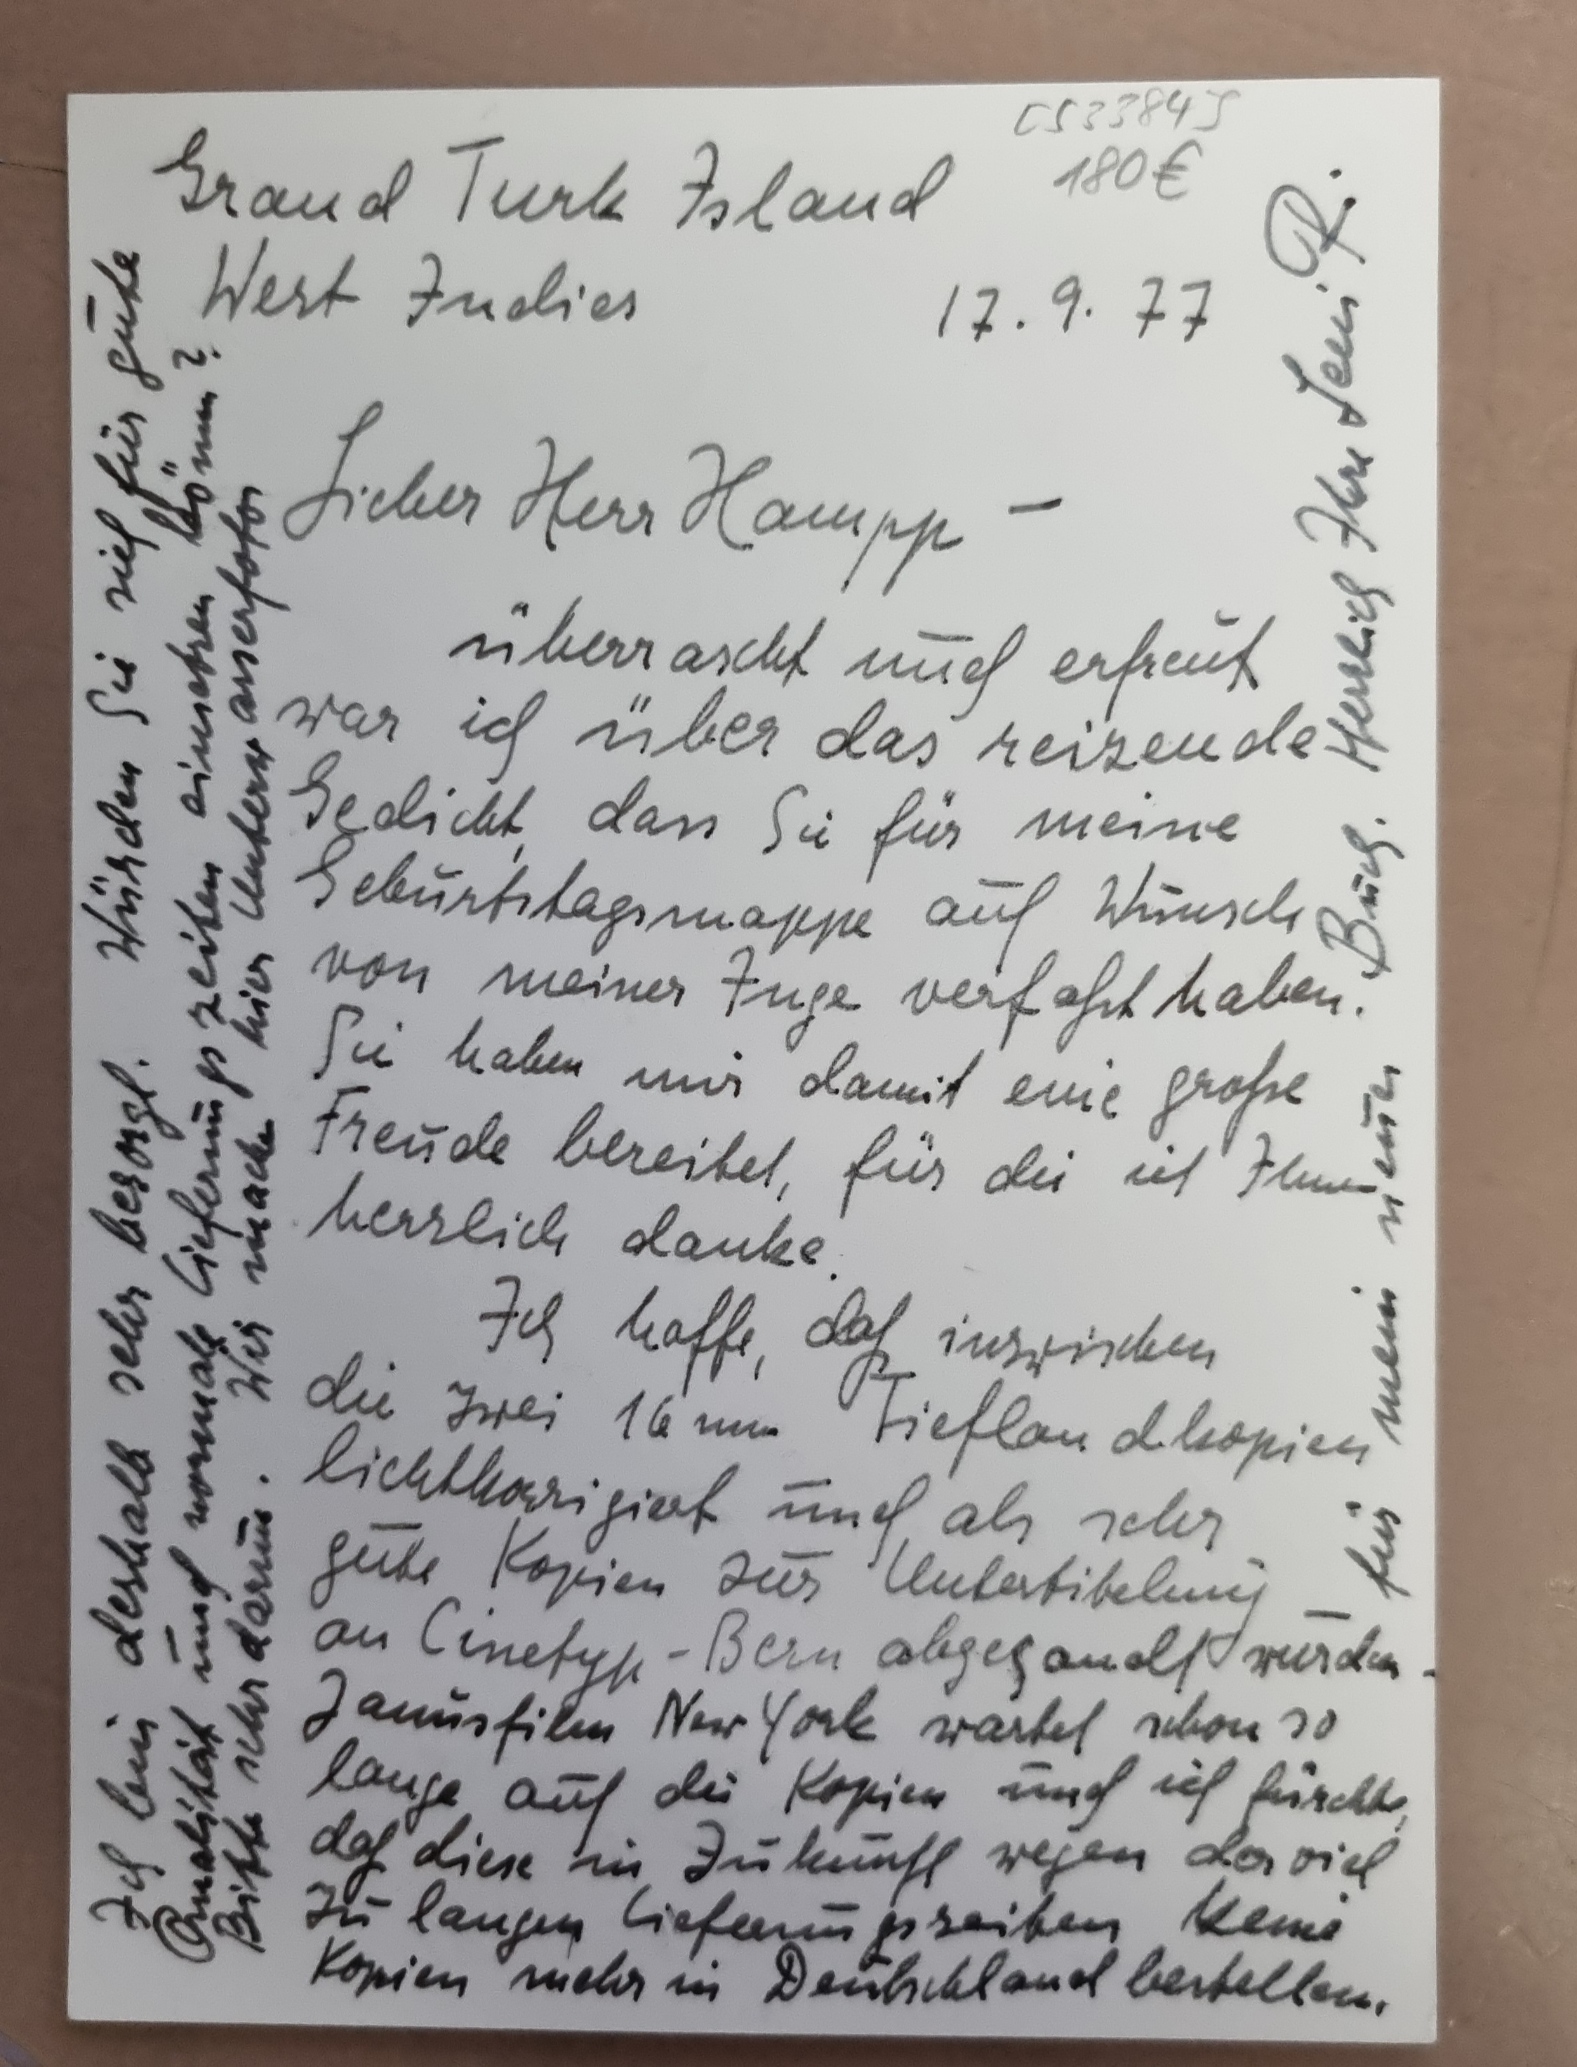 CS 33845
180€
Grand Turk Island
West Indies
17. 9. 77
Lieber Herr Hampp –
überrascht und erfreut
war ich über das reizende
Gedicht, dass Sie für meine
Geburtstagsmappe auf Wunsch
von meiner Inge verfaßt haben.
Sie haben mir damit eine große
Freude bereitet, für die ich Ihnen
herzlich danke.
Ich hoffe, daß inzwischen
die zwei 16 mm Tieflandkopien
lichtkorrigiert und als sehr
gute Kopien zur Untertitelung
an Cinetyp-Bern abgesandt wurden –
Janusfilm New York wartet schon so
lange auf die Kopien und ich fürchte,
daß diese in Zukunft wegen der viel
zu langen Lieferungszeiten keine
Kopien mehr in Deutschland bestellen.
Ich bin deshalb sehr besorgt. Würden Sie sich für gute
Qualität und normale Lieferungszeiten einsetzen können?
Bitte sehr darum. Wir machen hier Unterwasserfotos
für mein neues Buch. Herzlich Ihre Leni R.